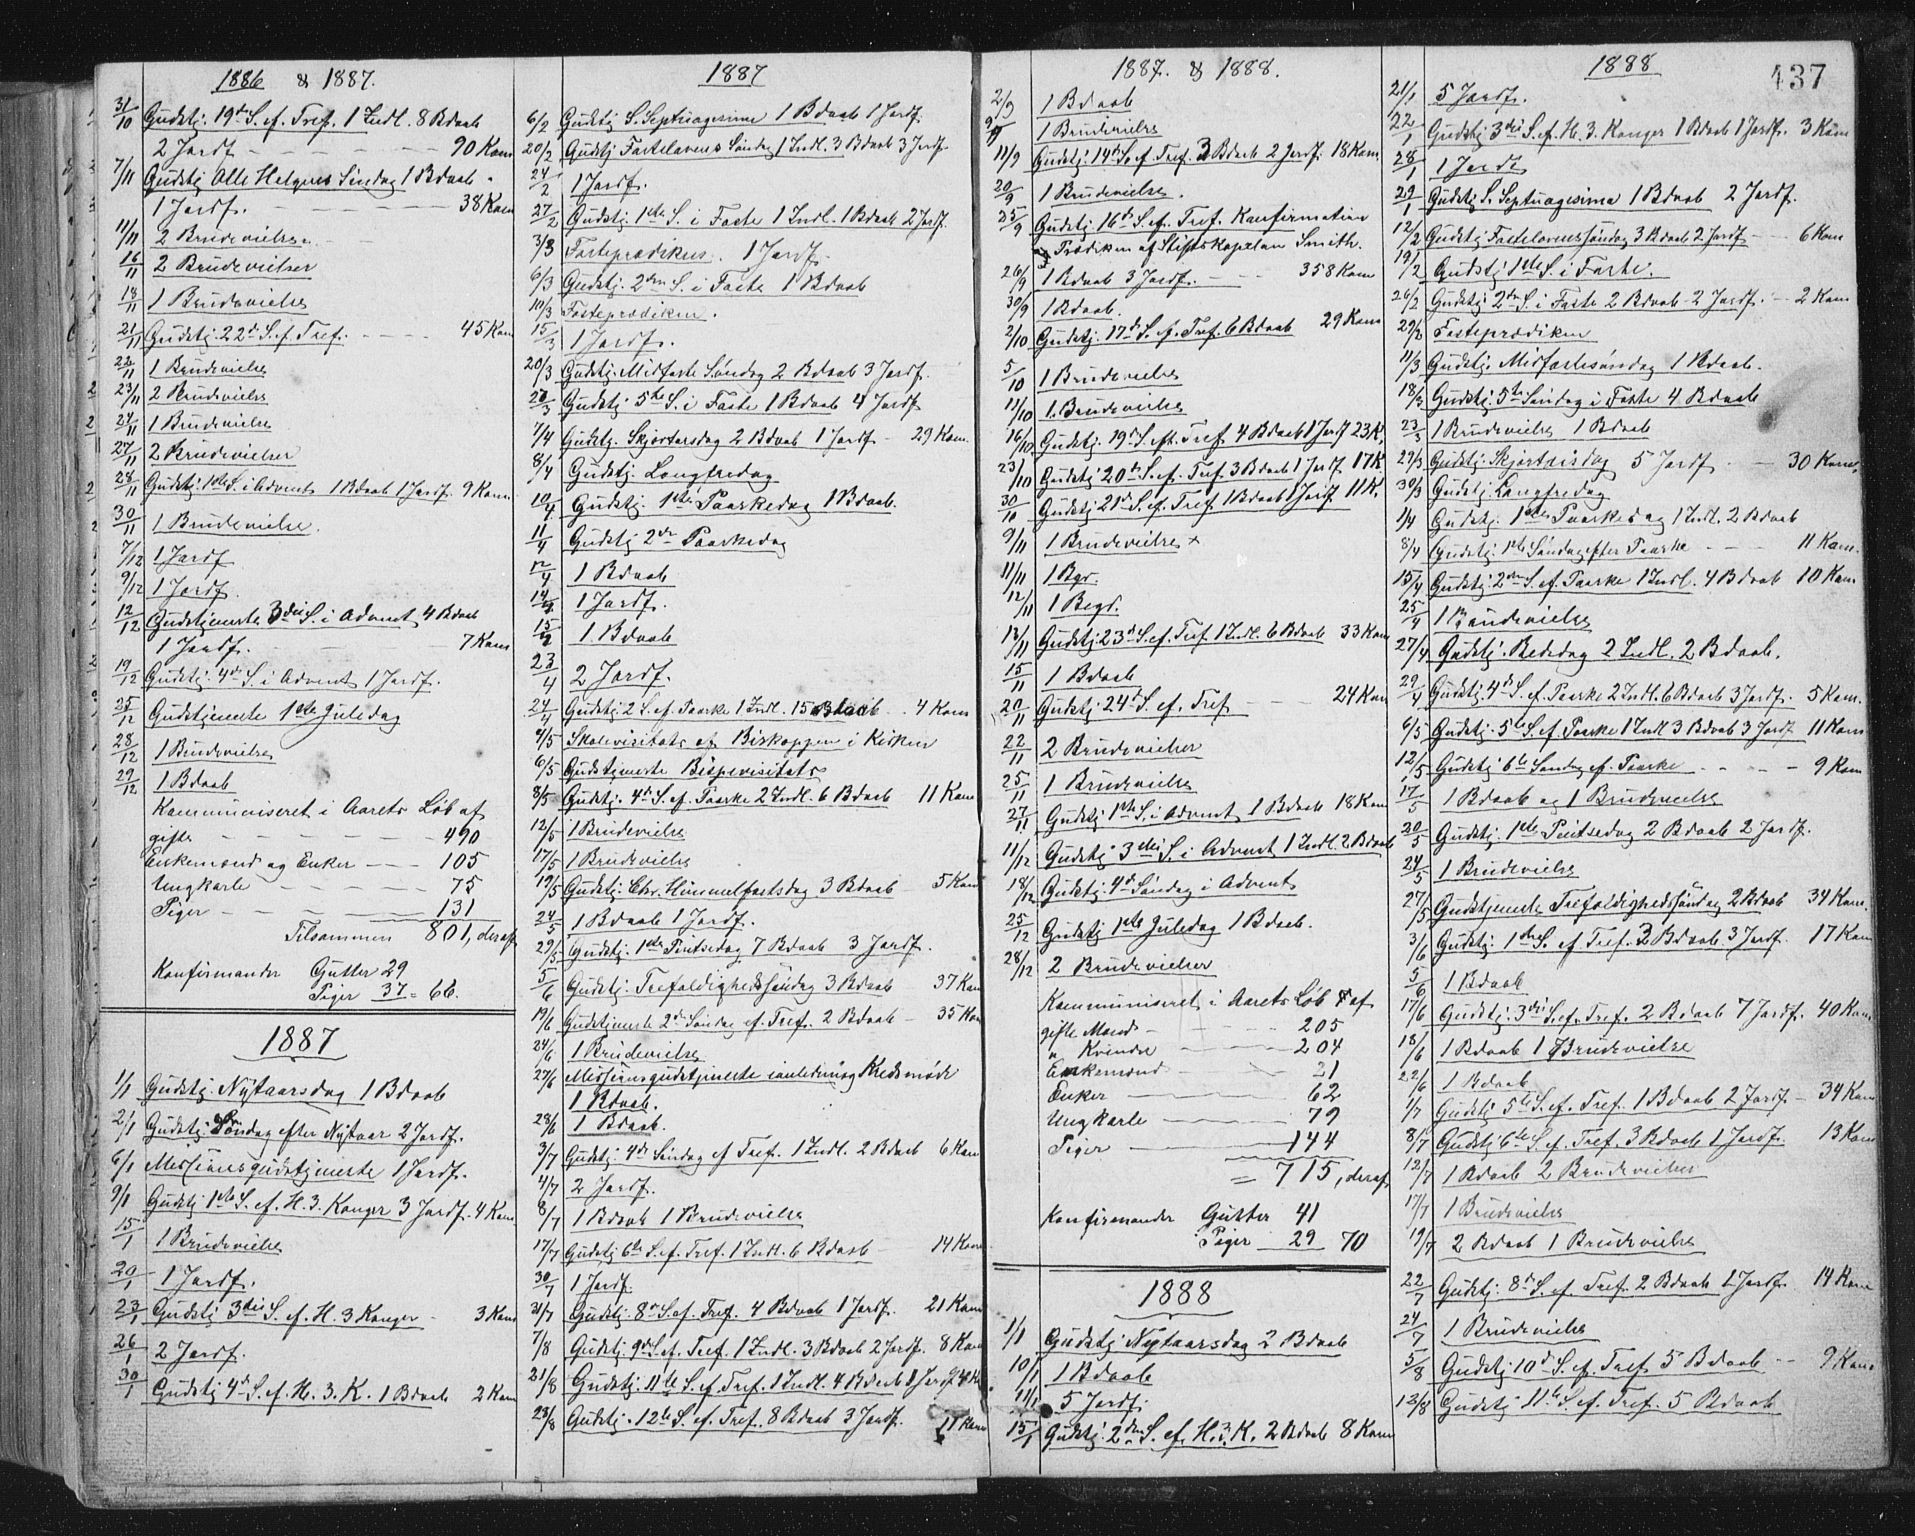 1886 & 1887.
31/10 Gudstj. 19de S. ef. Tref. 1 Indl. 8 Bdaab
2 Jordf. 90 Kom
7/11 Gudstj. Alle Helgens Søndag 1 Bdaab.
1 Jordf. 38 Kom
11/11 2 Brudevielse.
16/11 2 Brudevielser
18/11 1 Brudevielse
21/11 Gudstj. 22de S. ef. Tref. 45 Kom
22/11 1 Brudevielse
23/11 2 Brudevielse
24/11 1 Brudevielse
27/11 2 Brudevielser
28/11 Gudstj. 1ste S. i Advent 1 Bdaab 1 Jordf. 9 Kom.
30/11 1 Brudevielse.
7/12 1 Jordf.
9/12 1 Jordf.
12/12 Gudstjeneste 3die S. i Advent 4 Bdaab
1 Jordf. 7 Kom
19/12 Gudstj. 4de S. i Advent 1 Jordf.
25/12 Gudstjeneste 1ste Juledag
28/12 1 Brudevielse
29/12 1 Bdaab
Kommuniseret i Aarets Løb af
gifte 490
Enkemænd og Enker 105
Ungkarle 75
Piger 131
Tilsammen 801, deraf
Konfirmander Gutter 29
Piger 37 = 66.
1887
1/1 Gudstj. Nytaarsdag 1 Bdaab
2/1 Gudstj. Søndag efter Nytaar 2 Jordf.
6/1 Missionsgudstjeneste 1 Jordf.
9/1 Gudstj. 1ste S. ef. H. 3. Konger 3 Jordf. 4 Kom
15/1 1 Brudevielse
20/1 1 Jordf.
23/1 Gudstj. 3die S. ef. H. 3 Konger 3 Kom
26/1 2 Jordf.
30/1 Gudstj. 4de S. ef. H. 3. K. 1 Bdaab 2 Kom
1887
6/2 Gudstj. S. Septuagesima 1 Bdaab 1 Jordf.
20/2 Gudstj. Fastelavens Søndag 1 Indl. 3 Bdaab 3 Jordf.
24/2 1 Jordf.
27/2 Gudstj. 1ste S. i Faste 1 Indl. 1 Bdaab 2 Jordf.
3/3 Fasteprædiken. 1 Jordf.
6/3 Gudstj. 2den S. i Faste 1 Bdaab
10/3 Fasteprædiken.
15/3 1 Jordf.
20/3 Gudstj. Midfaste Søndag 2 Bdaab 3 Jordf.
Gudstj. 5te S. i Faste 1 Bdaab 4 Jordf.
7/4 Gudstj. Skjærtorsdag 2 Bdaab 1 Jordf. 29 Kom.
8/4 Gudstj. Langfredag
10/4 Gudstj. 1ste Paaskedag 1 Bdaab.
11/4 Gudstj. 2den Paaskedag
12/4 1 Bdaab
14/4 1 Jordf.
15/4 1 Bdaab
23/4 2 Jordf.
24/4 Gudstj. 2 S. ef. Paaske 1 Indl. 15 Bdaab 4 Kom
4/5 Skolevisitats af Biskoppen i Kirken
6/5 Gudstjeneste Bispevisitats
8/5 Gudstj. 4de S. ef. Paaske 2 Indl. 6 Bdaab 11 Kom
12/5 1 Brudevielse
17/5 1 Brudevielse
19/5 Gudstj. Chr. Himmelfartsdag 3 Bdaab 5 Kom
24/5 1 Bdaab 1 Jordf.
29/5 Gudstj. 1ste Pintsedag 7 Bdaab 3 Jordf.
5/6 Gudstj. Trefoldighedssøndag 3 Bdaab 37 Kom
19/6 Gudstjeneste 2de Søndag ef. Tref. 2 Bdaab 35 Kom
24/6 1 Brudevielse
27/6 Missionsgudstjeneste i anledning Kredsmøde
1 Bdaab.
28/6 1 Bdaab.
3/7 Gudstj. 4de Søndag ef Tref. 1 Indl. 2 Bdaab 6 Kom
4/7 2 Jordf.
8/7 1 Bdaab 1 Brudevielse
17/7 Gudstj. 6te S. ef. Tref. 1 Indl. 6 Bdaab 14 Kom
30/7 1 Jordf.
31/7 Gudstj. 8de S. ef. Tref. 4 Bdaab 1 Jordf. 21 Kom
7/8 Gudstj. 9de S. ef. Tref. 1 Indl. 3 Bdaab 2 Jordf. 8 Kom
21/8 Gudstj. 11te S. ef. Tref. 1 Indl. 4 Bdaab 1 Jordf
28/8 Gudstj. 12te S. ef. Tref. 8 Bdaab 3 Jordf. 11 Kom
1887. & 1888.
2/9 1 Bdaab
9/9 1 Brudevielse
11/9 Gudstj. 14de S. ef. Tref. 3 Bdaab 2 Jordf. 18 Kom.
20/9 1 Brudevielse.
25/9 Gudstj. 16de S. ef. Tref. Konfirmation
Prædiken af Stiftskapelan Smith.
26/9 1 Bdaab 3 Jordf. 358 Kom
30/9 1 Bdaab.
2/10 Gudstj. 17de S. ef. Tref. 6 Bdaab 29 Kom
5/10 1 Brudevielse
11/10 1. Brudevielse
16/10 Gudstj. 19de S. eft. Tref. 4 Bdaab 1 Jordf 23 K.
23/10 Gudstj. 20de S. ef. Tref. 3 Bdaab 1 Jordf. 17 K
30/10 Gudstj. 21de S. ef. Tref. 1 Bdaab 1 Jordf 11 K.
9/11 1 Brudevielse x
11/11 1 Bgr.
12/11 1 Begr.
13/11 Gudstj. 23de S. ef. Tref. 1 Indl. 6 Bdaab 33 Kom
15/11 1 Bdaab
20/11 Gudstj. 24de S. ef. Tref 24 Kom
22/11 2 Brudevielser
25/11 1 Brudevielse
27/11 Gudstj. 1ste S. i Advent 1 Bdaab 18 Kom
11/12 Gudstj. 3die S. i Advent 1 Indl. 2 Bdaab
18/12 Gudstj. 4de Søndag i Advent
25/12 Gudstj. 1ste Juledag 1 Bdaab.
28/12 2 Brudevielser
Kommuniseret i Aarets Løb af
gifte Mænd 205
" Kvinder 204
Enkemænd 21
Enker 62
Ungkarle 79
Piger 144
= 715, deraf
Konfirmander Gutter 41
Piger 29 70
1888
1/1 Gudstj. Nytaarsdag 2 Bdaab
10/1 1 Bdaab
11/1 5 Jordf.
15/1 Gudstj. 2den S. ef. H. 3. K. 2 Bdaab 8 Kom
1888
437
21/1 5 Jordf.
22/1 Gudstj. 3die S. ef. H. 3. Konger 1 Bdaab 1 Jordf. 3 Kom
28/1 1 Jordf.
29/1 Gudstj. S. Septuagesima 1 Bdaab 2 Jordf.
12/2 Gudstj. Fastelavenssøndag 3 Bdaab 2 Jordf 6 Kom
19/2 Gudstj. 1ste S. i Faste.
26/2 Gudstj. 2den S. i Faste 2 Bdaab 2 Jordf. 2 Kom
29/2 Fasteprædiken
11/3 Gudstj. Midfastesøndag 1 Bdaab.
18/3 Gudstj. 5te Søndag i Faste 4 Bdaab
23/3 1 Brudevielse 1 Bdaab
29/3 Gudstj. Skjærtorsdag 5 Jordf. 30 Kom.
30/3 Gudstj. Langfredag
1/4 Gudstj. 1ste Paaskedag 1 Indl. 2 Bdaab
8/4 Gudstj. 1ste Søndag efter Paaske 11 Kom.
15/4 Gudstj. 2den S. ef. Paaske 1 Indl. 4 Bdaab 10 Kom
25/4 1 Brudevielse
27/4 Gudstj. Bededag 2 Indl. 2 Bdaab.
29/4 Gudstj. 4de S. ef. Paaske 2 Indl. 6 Bdaab 3 Jordf. 5 Kom.
6/5 Gudstj. 5te S. ef. Paaske 1 Indl 3 Bdaab 3 Jordf 11 Kom
12/5 Gudstj. 6te Søndag ef. Paaske 9 Kom
17/5 1 Bdaab og 1 Brudevielse
20/5 Gudstj. 1ste Pintsedag 2 Bdaab 2 Jordf.
24/5 1 Brudevielse
27/5 Gudstjeneste Trefoldighedssøndag 2 Bdaab 34 Kom.
3/6 Gudstj. 1ste S. ef. Tref. 3 Bdaab 3 Jordf. 17 Kom
5/6 1 Bdaab
17/6 Gudstj. 3die S. ef. Tref. 2 Bdaab 7 Jordf. 40 Kom
18/6 1 Bdaab 1 Brudevielse
22/6 1 Bdaab
1/7 Gudstj. 5te S. ef. Tref. 1 Bdaab 2 Jordf. 34 Kom
8/7 Gudstj. 6te S. ef. Tref. 3 Bdaab 1 Jordf. 13 Kom
12/7 1 Bdaab 2 Brudevielser
17/7 1 Brudevielse
19/7 2 Bdaab 1 Brudevielse
22/7 Gudstj. 8de S. ef. Tref. 2 Bdaab 1 Jordf. 14 Kom
24/7 1 Brudevielse
5/8 Gudstj. 10de S. ef. Tref. 5 Bdaab 9 Kom
12/8 Gudstj. 11te S. ef. Tref. 5 Bdaab